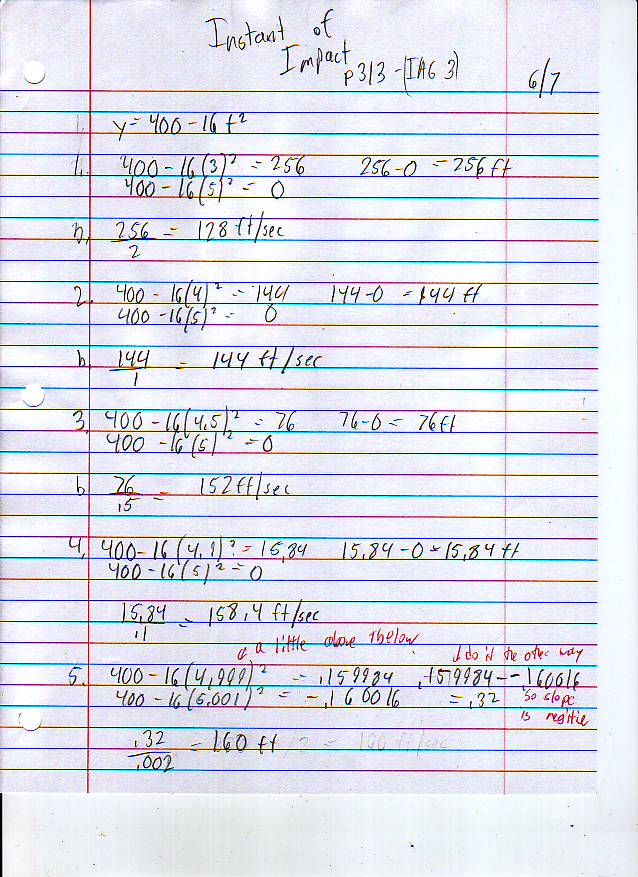 Instant of
Impact
p313-(IAG 3)
6/7
y = 400 - 16t²
1. 400 - 16(3)² = 256 256-0 = 256 ft
400 - 16(5)² = 0
b, 256/2 = 128 ft/sec
2. 400 - 16(4)² = 144 144-0 = 144 ft
400 - 16(5)² = 0
b 144/1 = 144 ft/sec
3, 400 - 16(4.5)² = 76 76-0 = 76ft
400 - 16(5)² = 0
b 76/.5 = 152 ft/sec
4, 400 - 16(4.9)² = 15.84 15.84 - 0 = 15.84 ft
400 - 16(5)² = 0
15.84/.1 = 158.4 ft/sec
a little above & below
↓ do it the other way
5. 400 - 16(4.999)² = .159984 .159984 - -.160016
400 - 16(5.001)² = -.160016 = .32 so slope
is negitie
.32/.002 = 160 ft